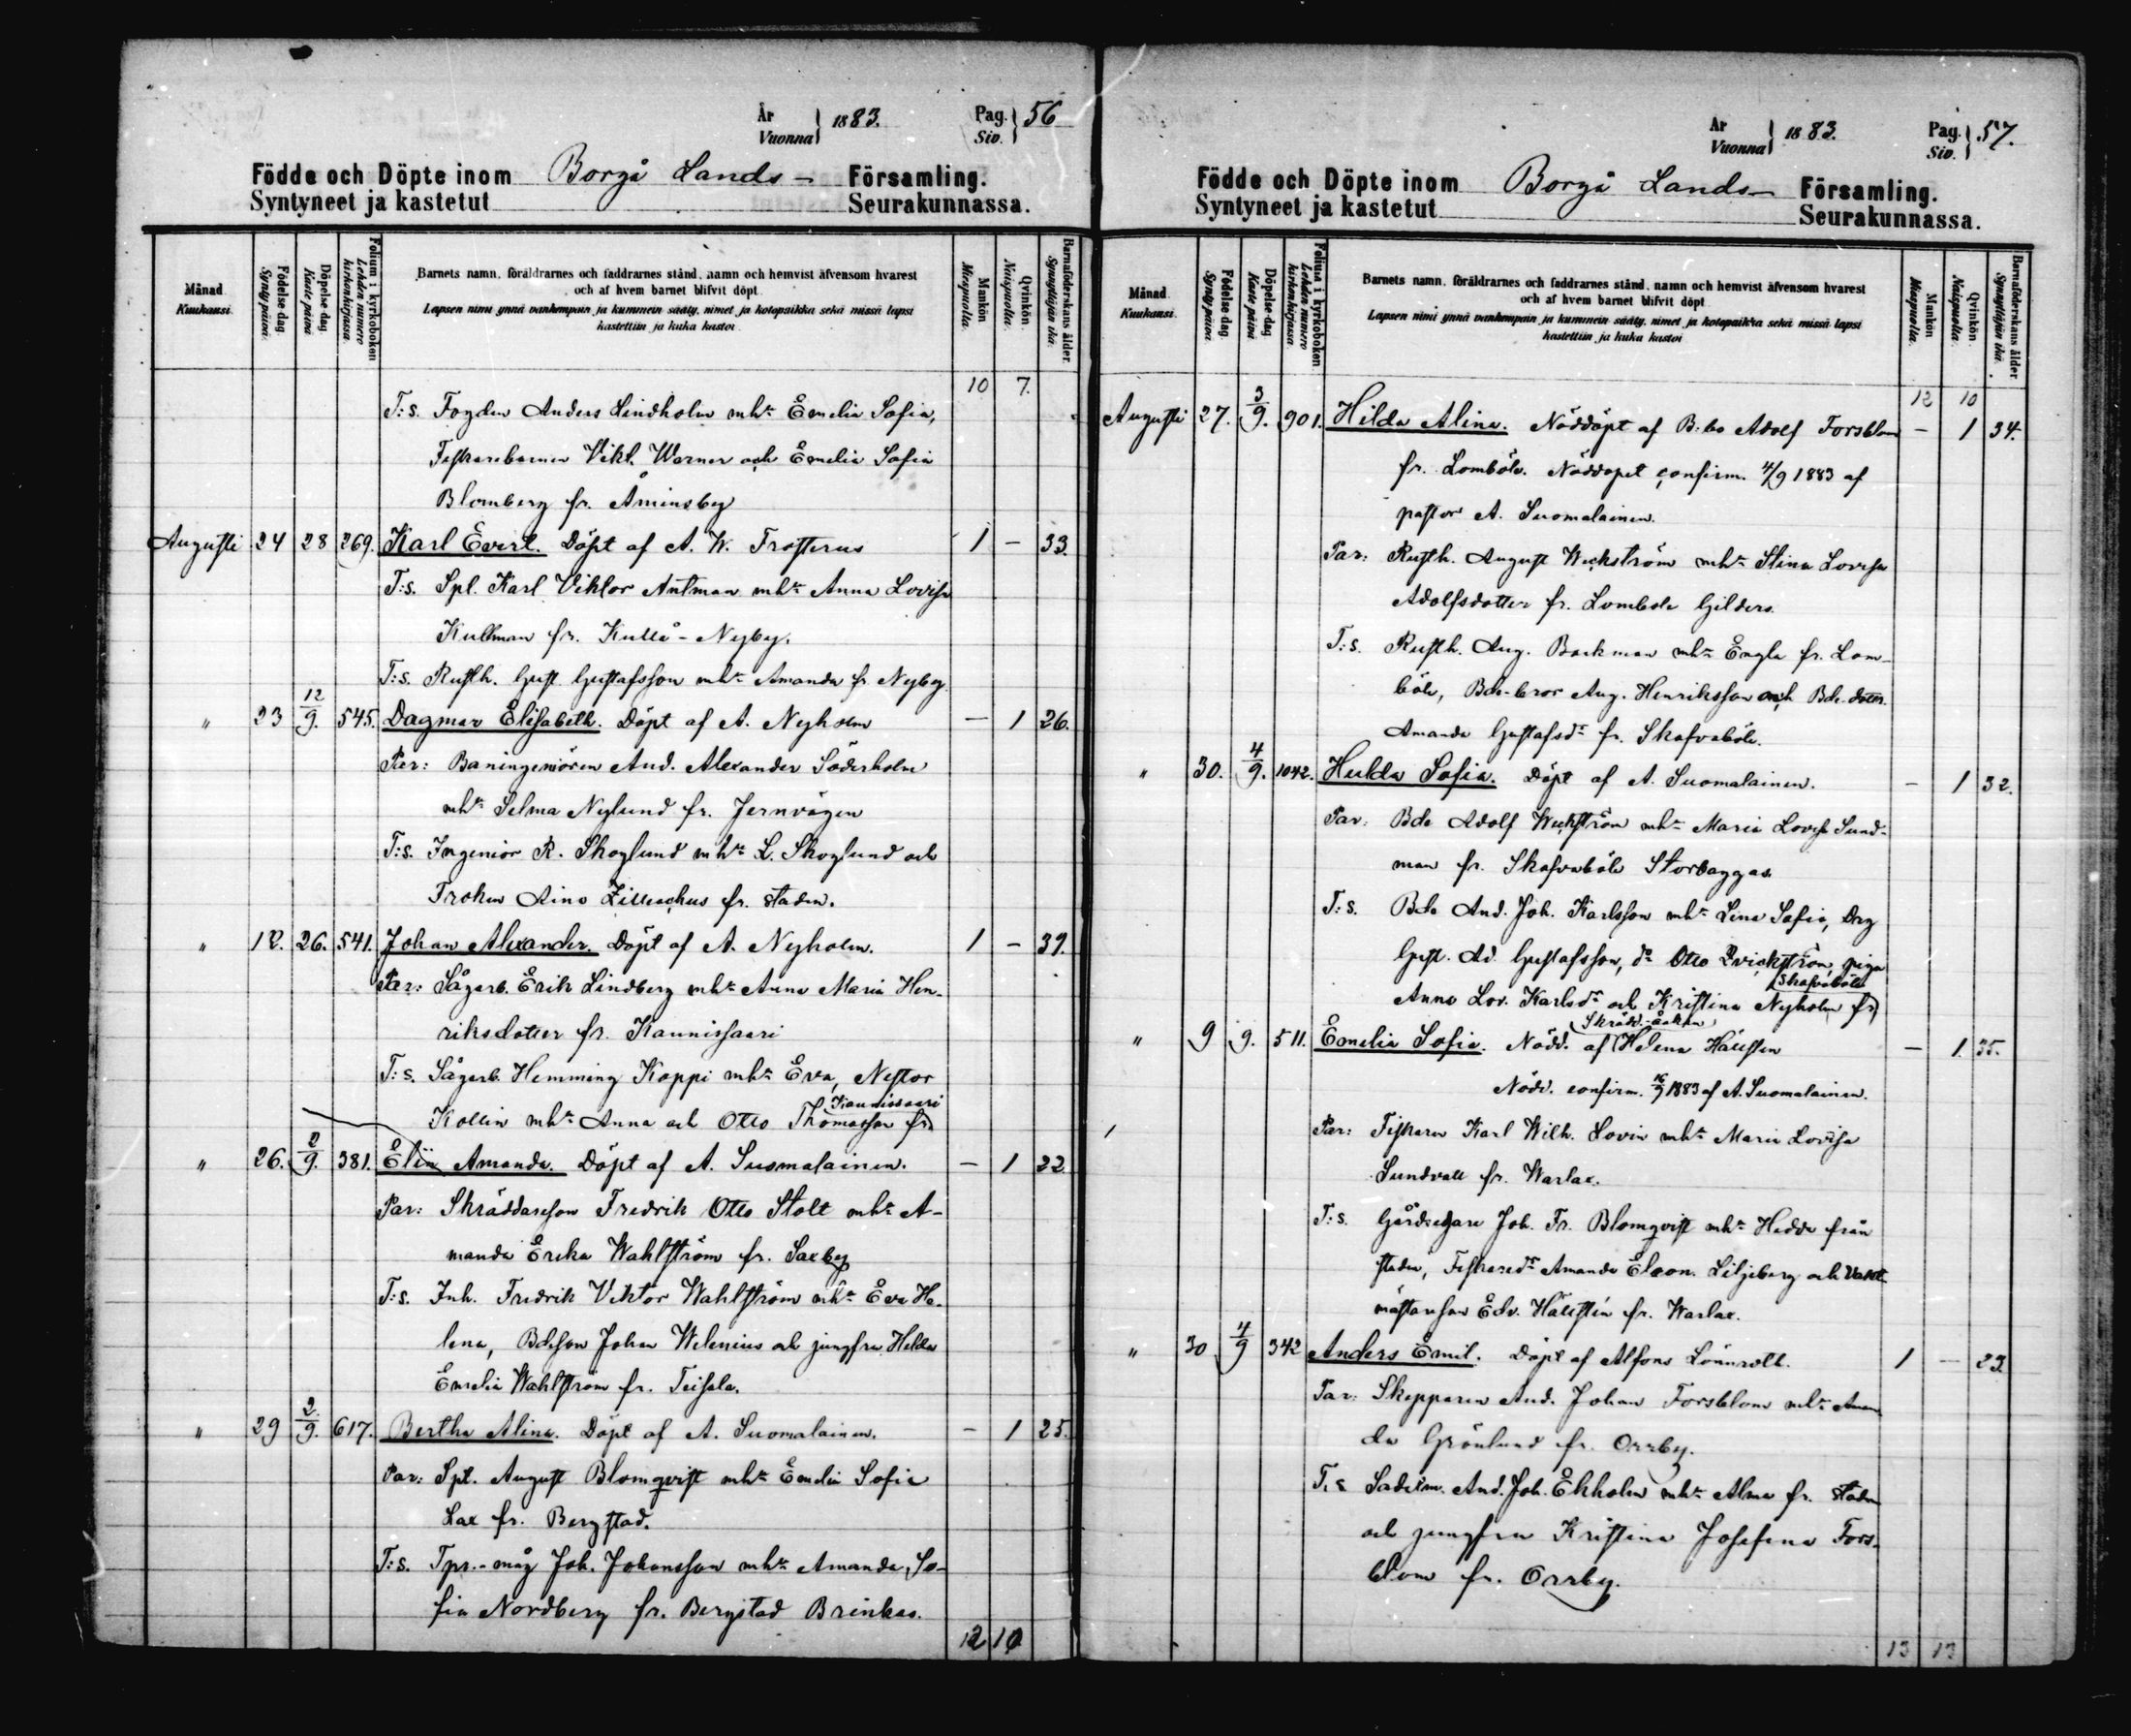 År Vuonna } 1883. Pag. Siv. } 56
Födde och Döpte inom Borgå Lands- Församling.
Syntyneet ja kastetut Seurakunnassa.
Månad Kuukausi.
Födelse dag. Synty päivä.
Döpelse-dag Kaste päivä
Folium i kyrkoboken Lehden numero kirkonkirjassa.
Barnets namn, föräldrarnes och faddrarnes stånd, namn och hemvist äfvensom hvarest
och af hvem barnet blifvit döpt.
Lapsen nimi ynnä vanhempain ja kummein sääty, nimet ja kotopaikka sekä missä lapsi
kastettiin ja kuka kastoi.
Mankön Miespuolta.
Qvinkön Naispuolta.
Barnaföderskans ålder. Synnyttäjän ikä.
10 7.
T:s. Fogden Anders Lindholm mhn Emelia Sofia,
Fiskarebarnen Vikt. Werner och Emelia Sofia
Blomberg fr. Åminsby
Augusti 24 28 269. Karl Evert. Döpt af A. W. Frosterus 1 – 33.
T:s. Spl. Karl Viktor Antman mhn Anna Lovisa
Kullman fr. Kullå-Nyby.
T:s. Rusth. Gust. Gustafsson mhn Amanda fr. Nyby
" 23 12/9. 545. Dagmar Elisabeth. Döpt af A. Nyholm – 1 26.
Par: Baningeniören And. Alexander Söderholm
mhn Selma Nylund fr. Jernvägen
T:s. Ingeniör R. Skoglund mhn L. Skoglund och
Fröken Aino Zilliachus fr. staden.
" 12. 26. 541. Johan Alexander. Döpt af A. Nyholm. 1 – 39.
Par: Sågarb. Erik Lindberg mhn Anna Maria Hen-
riksdotter fr. Kaunissaari
T:s. Sågarb. Hemming Koppi mhn Eva, Nestor
Kollin mhn Anna och Otto Thomasson fr. Kaunissaari
" 26. 2/9. 381. Elin Amanda. Döpt af A. Suomalainen. – 1 22
Par: Skräddareson Fredrik Otto Stolt mhn A-
manda Erika Wahlström fr. Saxby
T:s. Inh. Fredrik Viktor Wahlström mhn Eva He-
lena, Bdeson Johan Welenius och jungfru Hilda
Emelia Wahlström fr. Teisala.
" 29 2/9. 617. Bertha Alina. Döpt af A. Suomalainen. – 1 25.
Par: Spl. August Blomqvist mhn Emelia Sofia
Lax fr. Bergstad.
T:s. Tpr.-måg Joh. Johansson mhn Amanda, So-
fia Nordberg fr. Bergstad Brinkas.
12 10
År Vuonna } 1883. Pag. Siv. } 57.
Födde och Döpte inom Borgå Lands- Församling.
Syntyneet ja kastetut Seurakunnassa.
Månad Kuukausi.
Födelse dag. Synty päivä.
Döpelse-dag Kaste päivä
Folium i kyrkoboken Lehden numero kirkonkirjassa
Barnets namn, föräldrarnes och faddrarnes stånd, namn och hemvist äfvensom hvarest
och af hvem barnet blifvit döpt.
Lapsen nimi ynnä vanhempain ja kummein sääty, nimet ja kotopaikka sekä missä lapsi
kastettiin ja kuka kastoi
Mankön Miespuolta.
Qvinkön. Naispuolta.
Barnaföderskans ålder Synnyttäjän ikä.
12 10
Augusti 27. 3/9. 901. Hilda Alina. Nöddöpt af Adolf Forsblom – 1 34.
fr. Lomböle. Nöddopet confirm. 4/9 1883 af
pastor A. Suomalainen.
Par: Rusth. August Weckström mhn Stina Lovisa
Adolfsdotter fr. Lomböle Gilders.
T:s. Rusth. Aug. Backman mhn Engla fr. Lom-
böle, Bde-bror Aug. Henriksson och Bde-dotter
Amanda Gustafsdr fr. Skafvaböle.
" 30. 4/9. 1042. Hulda Sofia. Döpt af A. Suomalainen. – 1 32.
Par: Bde Adolf Weckström mhn Maria Lovisa Sund-
man fr. Skafvaböle Storbaggas.
T:s. Bde And. Joh. Karlsson mhn Lena Sofia, Drg
Gust. Ad. Gustafsson, do Otto Qvickström, piga
Anna Lov. Karlsdr och Kristina Nyholm fr. Skafvaböle
" 9 9. 511. Emelia Sofia. Nödd. af Helena Hällsten – 1. 35.
Nödd. confirm. 16/9 1883 af A. Suomalainen.
Par: Fiskaren Karl Wilh. Lovin mhn Maria Lovisa
Sundvall fr. Warlax.
T:s. Gårdsegare Joh. Fr. Blomqvist mhn Hedda från
staden, Fiskaredr Amanda Eleon. Liljeberg och Vakt-
mästareson Edv. Hällstén fr. Warlax.
" 30 4/9 342 Anders Emil. Döpt af Alfons Lönnrott. 1 – 23
Par: Skepparen And. Johan Forsblom mhn Aman
da Grönlund fr. Orrby.
T:s And. Joh. Ekholm mhn Alma fr. staden
och jungfru Kristina Josefina Fors-
blom fr. Orrby.
13 13